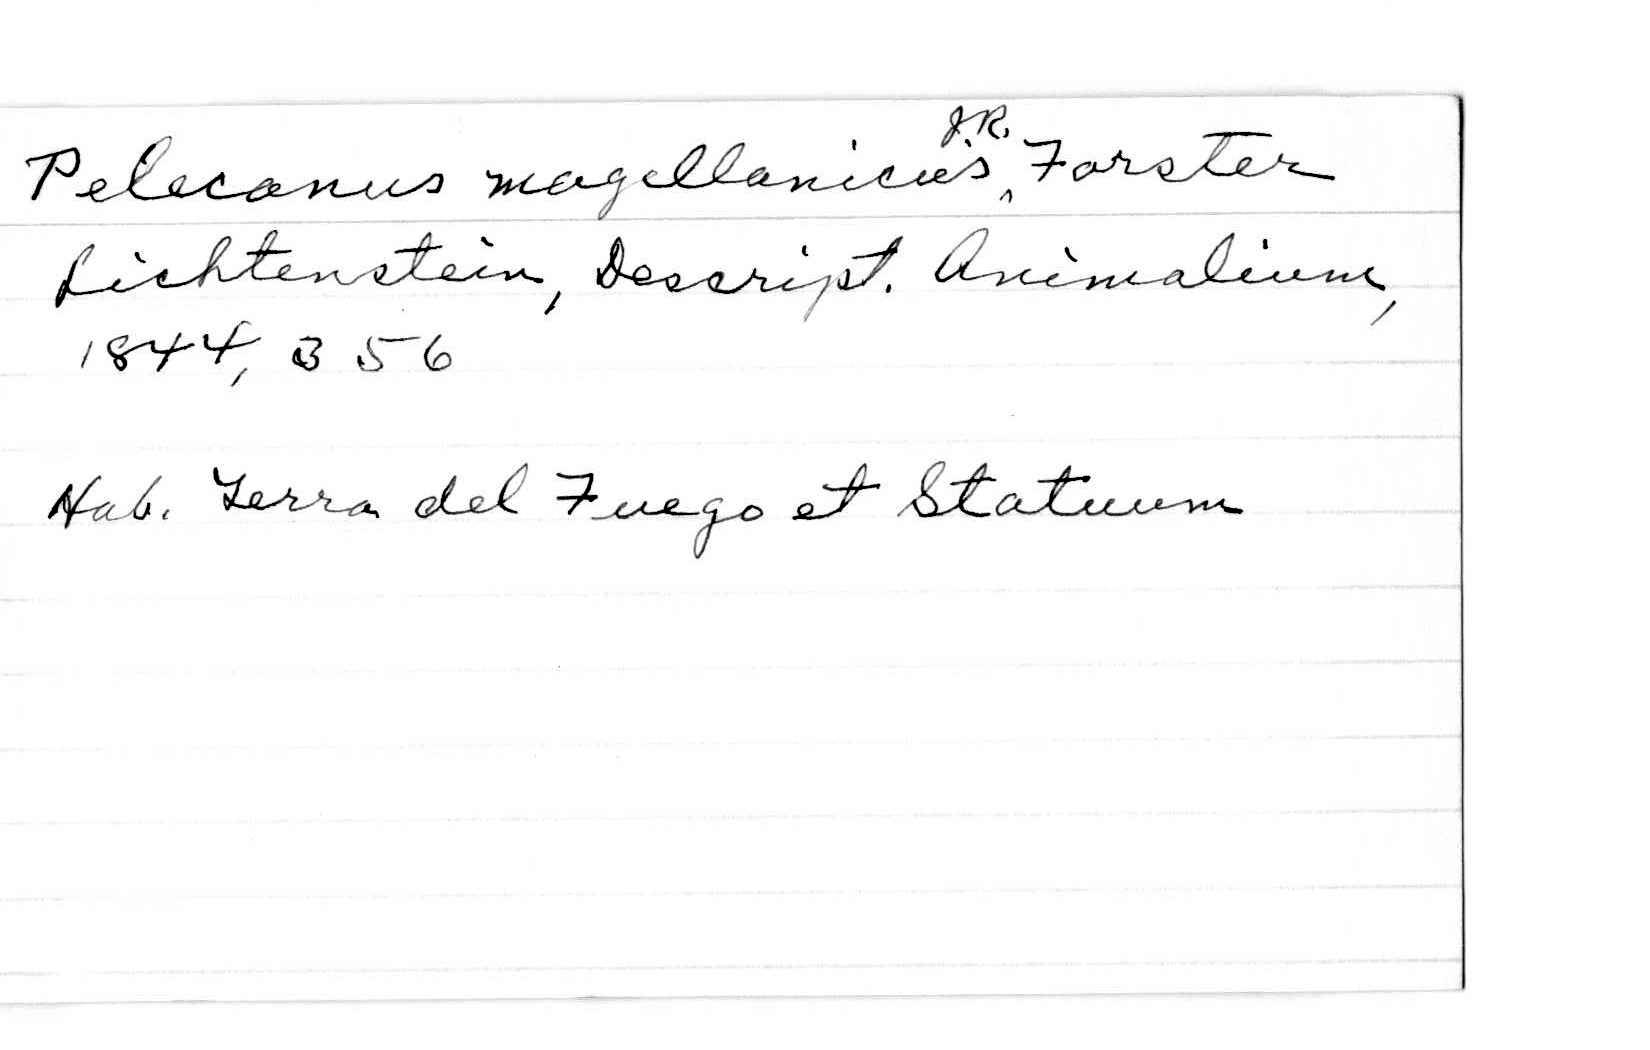 Pelecanus magellanicus J.R. Forster
Lichtenstein, Descript. Animalium,
1844, 356
Hab. Terra del Fuego et Statuum